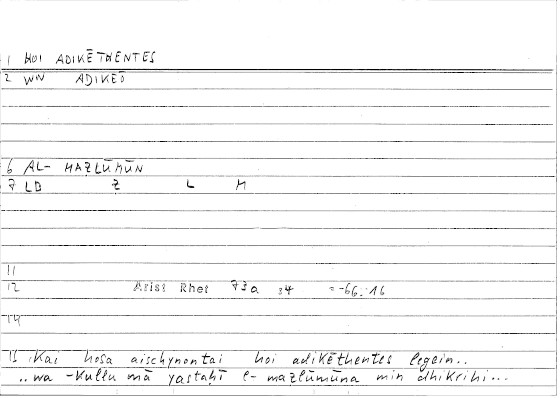 1 HOI ADIKĒTHENTES
2 WN ADIKEŌ
6 AL- MAZLŪMŪN
7 LD Z L M
11
12 Arist Rhet 73a 34 = -66.16
14
15 Kai hosa aischynontai hoi adikēthentes legein..
.. wa -kullu mā yastaḥī l- mazlūmūna min dhikrihi...